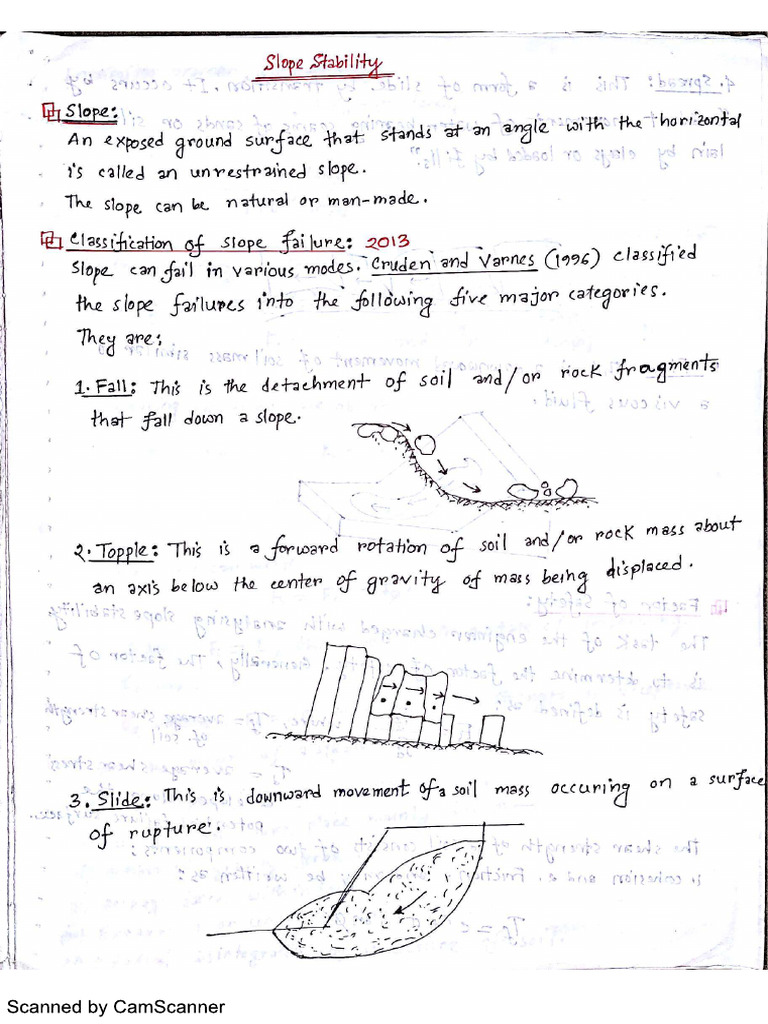 Slope Stability
Slope:
An exposed ground surface that stands at an angle with the horizontal
is called an unrestrained slope.
The slope can be natural or man-made.
Classification of slope failure: 2013
Slope can fail in various modes. Cruden and Varnes (1996) classified
the slope failures into the following five major categories.
They are:
1. Fall: This is the detachment of soil and/or rock fragments
that fall down a slope.
2. Topple: This is a forward rotation of soil and/or rock mass about
an axis below the center of gravity of mass being displaced.
3. Slide: This is downward movement of a soil mass occuring on a surface
of rupture.
Scanned by CamScanner